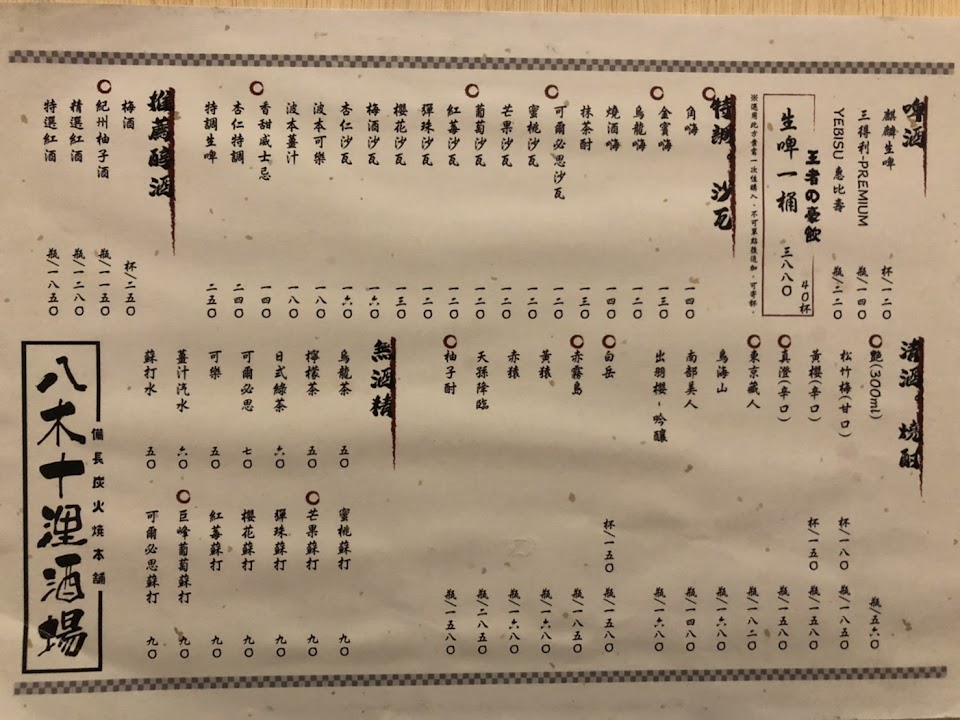 啤酒
麒麟生啤 杯/一二〇
三得利-PREMIUM 瓶/一四〇
YEBISU 惠比壽 瓶/二二〇
王者の豪飲
生啤一桶 三八八〇
40杯
特調。沙瓦
角嗨 一四〇
金賓嗨 一三〇
烏龍嗨 一二〇
燒酒嗨 一四〇
抹茶酎 一三〇
可爾必思沙瓦 一二〇
蜜桃沙瓦 一二〇
芒果沙瓦 一二〇
葡萄沙瓦 一二〇
紅莓沙瓦 一二〇
彈珠沙瓦 一二〇
櫻花沙瓦 一三〇
梅酒沙瓦 一六〇
杏仁沙瓦 一六〇
波本可樂 一八〇
波本薑汁 一八〇
香甜威士忌 一四〇
杏仁特調 二四〇
特調生啤 二五〇
推薦醇酒
梅酒 杯/二五〇
紀州柚子酒 瓶/一一五〇
精選紅酒 瓶/一二八〇
特選紅酒 瓶/一八五〇
清酒。燒酎
艷(300ml) 瓶/五六〇
松竹梅(甘口) 杯/一八〇 瓶/一八五〇
黃櫻(辛口) 杯/一五〇 瓶/一五八〇
真澄(辛口) 瓶/一五五〇
東京藏人 瓶/一八二〇
鳥海山 瓶/一六八〇
南部美人 瓶/一四八〇
出羽櫻-吟釀 瓶/一六八〇
白岳 杯/一五〇 瓶/一五五〇
赤霧島 瓶/一八五〇
黃猿 瓶/一六八〇
赤猿 瓶/一六八〇
天孫降臨 瓶/二八五〇
柚子酎 瓶/一五八〇
無酒精
烏龍茶 五〇
檸檬茶 五〇
日式綠茶 六〇
可爾必思 七〇
可樂 五〇
薑汁汽水 六〇
蘇打水 五〇
蜜桃蘇打 九〇
芒果蘇打 九〇
彈珠蘇打 九〇
櫻花蘇打 九〇
紅莓蘇打 九〇
巨峰葡萄蘇打 九〇
可爾必思蘇打 九〇
備長炭火燒本舖
八木十浬酒場